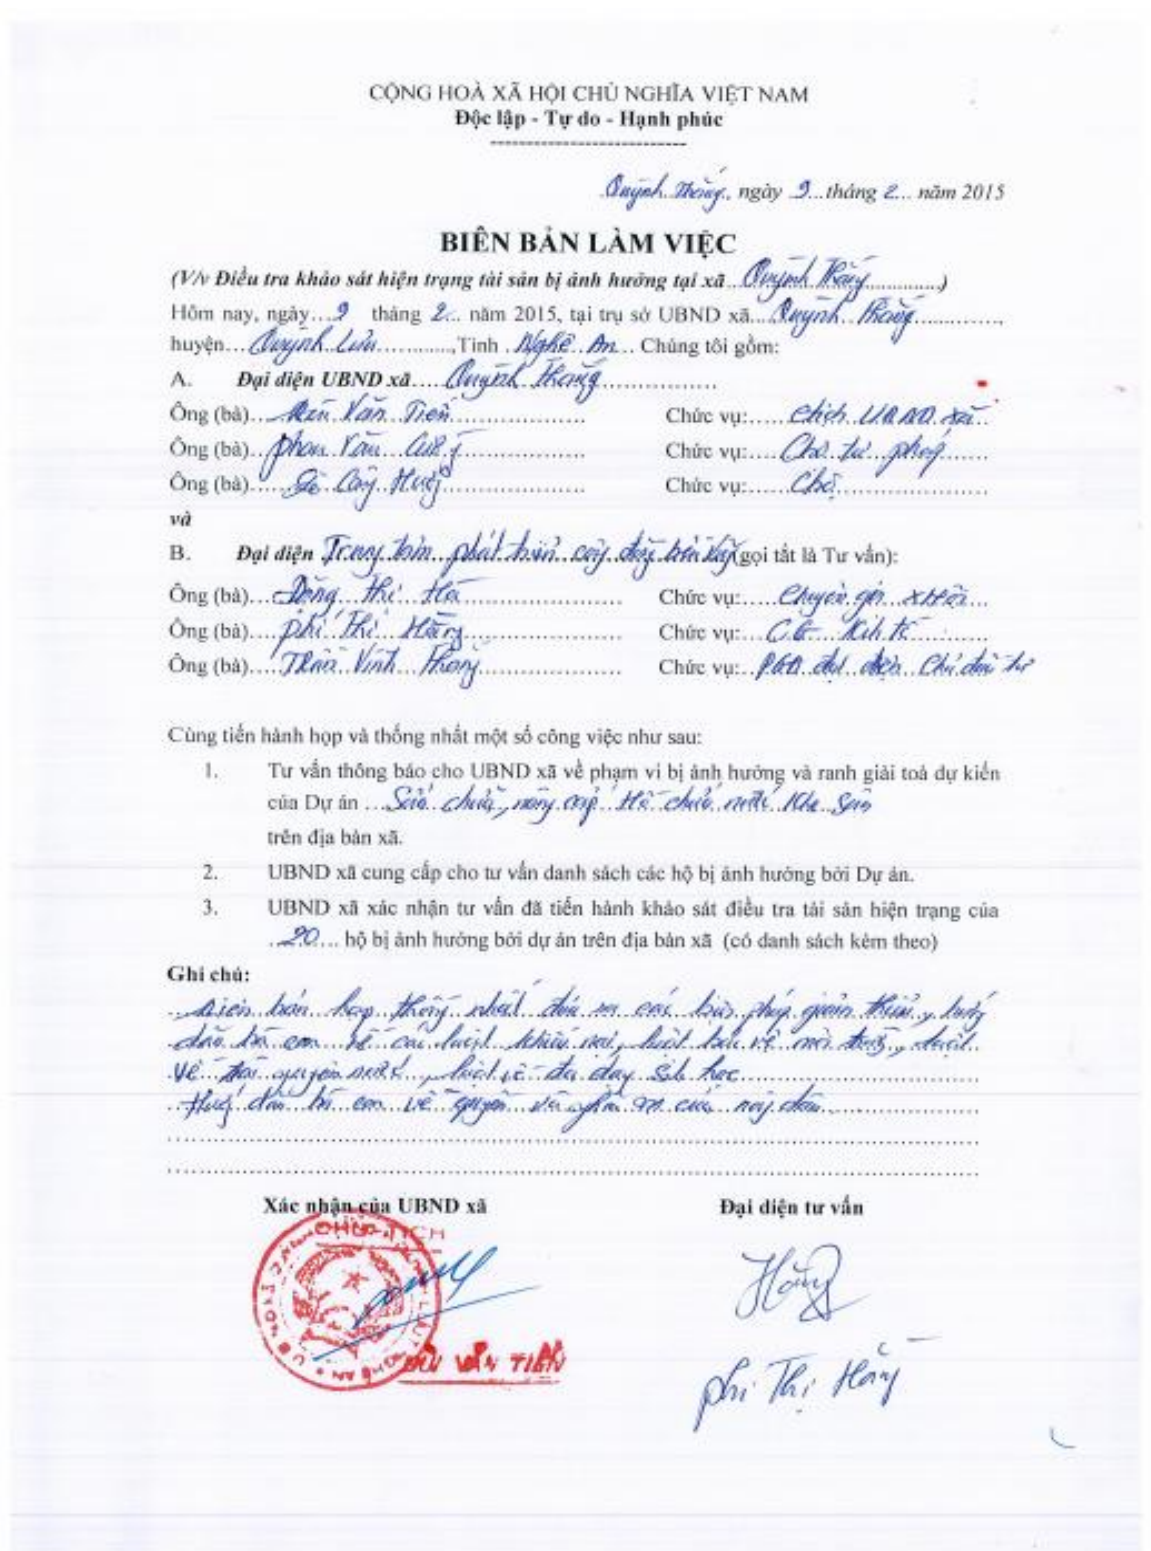 CỘNG HOÀ XÃ HỘI CHỦ NGHĨA VIỆT NAM
Độc lập - Tự do - Hạnh phúc
Quỳnh Thắng, ngày 9 tháng 2 năm 2015
BIÊN BẢN LÀM VIỆC
(V/v Điều tra khảo sát hiện trạng tài sản bị ảnh hưởng tại xã Quỳnh Thắng)
Hôm nay, ngày 9 tháng 2 năm 2015, tại trụ sở UBND xã Quỳnh Thắng,
huyện Quỳnh Lưu, Tỉnh Nghệ An Chúng tôi gồm:
A. Đại diện UBND xã Quỳnh Thắng
Ông (bà) Văn Tiến Chức vụ: UBND xã
Ông (bà) Phan Văn Chức vụ:
Ông (bà) Chức vụ:
và
B. Đại diện Trung tâm phát triển (gọi tắt là Tư vấn):
Ông (bà) Thị Hà Chức vụ: Chuyên gia
Ông (bà) Phí Thị Hằng Chức vụ: CG Kinh tế
Ông (bà) Trần Vinh Chức vụ: đại diện Chủ đầu tư
Cùng tiến hành họp và thống nhất một số công việc như sau:
1. Tư vấn thông báo cho UBND xã về phạm vi bị ảnh hưởng và ranh giải toả dự kiến
của Dự án Sửa chữa, nâng cấp Hồ chứa nước Khe
trên địa bàn xã.
2. UBND xã cung cấp cho tư vấn danh sách các hộ bị ảnh hưởng bởi Dự án.
3. UBND xã xác nhận tư vấn đã tiến hành khảo sát điều tra tài sản hiện trạng của
20 hộ bị ảnh hưởng bởi dự án trên địa bàn xã (có danh sách kèm theo)
Ghi chú:
Biên bản họp thống nhất đưa ra các biện pháp giảm thiểu, hướng
dẫn bà con về các luật khiếu nại, luật bảo vệ môi trường, luật
về tài nguyên nước, luật về đa dạng sinh học
Hướng dẫn bà con về quyền và của người dân
Xác nhận của UBND xã
Đại diện tư vấn
CHỦ TỊCH
VĂN TIẾN
Hằng
Phí Thị Hằng